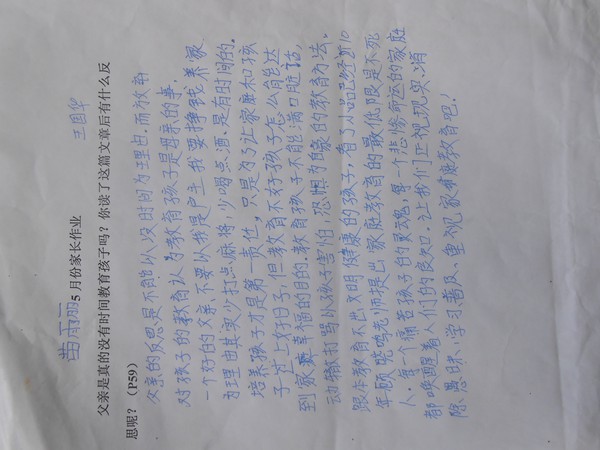 苗雨丽 5 月份家长作业 王国华
父亲是真的没有时间教育孩子吗？你读了这篇文章后有什么反
思呢？（P59）
父亲的反思是不能以没时间为理由.而放弃
对孩子的教育认为教育孩子是母亲的事.
一个好的父亲、不要以我是户主,我要挣钱养家
为理由其实少打点麻将,少喝点酒、是有时间的.
培养孩子才是第一责任，只是为了让家庭和孩
子过上好日子,但教育不好孩子怎么能达
到家庭幸福的目的.教育孩子不能满口脏话,
动辄打骂以孩子害怕,恐惧为家的教育办法.
跟本教育不出文明健康的孩子,看了小品已经近10
年顾晓鸣老师提出家庭教育的最低限是不死
人.每个痛苦孩子的灵魂,每一个悲惨命运的家庭
都唤醒着人们的良知.让我们正视现实.消
除愚昧.学习普及、重视家庭教育吧!